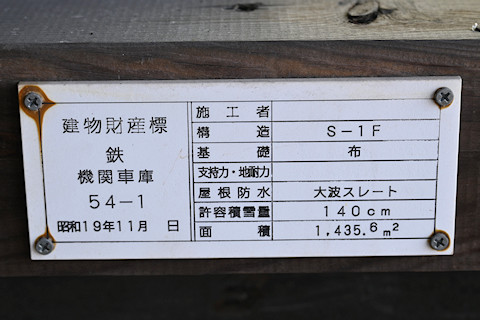 建物財産標
鉄
機関車庫
54-1
昭和19年11月 日
施工者
構造 S-1F
基礎 布
支持力・地耐力
屋根防水 大波スレート
許容積雪量 140cm
面積 1,435.6m²